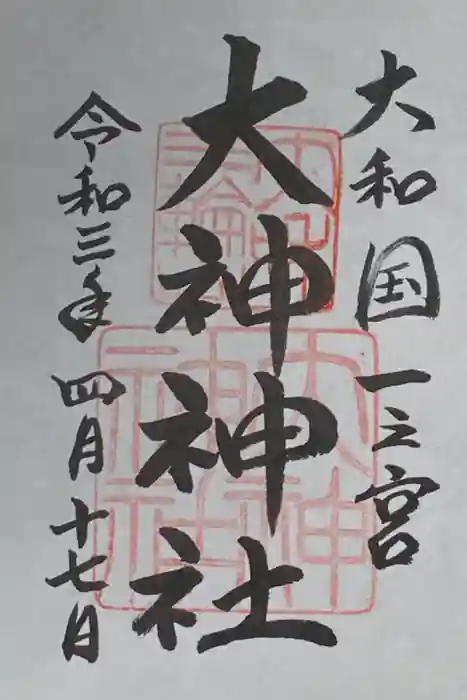 大和国一之宮
大神神社
令和三年四月十七日
三輪
明神
大神
神社